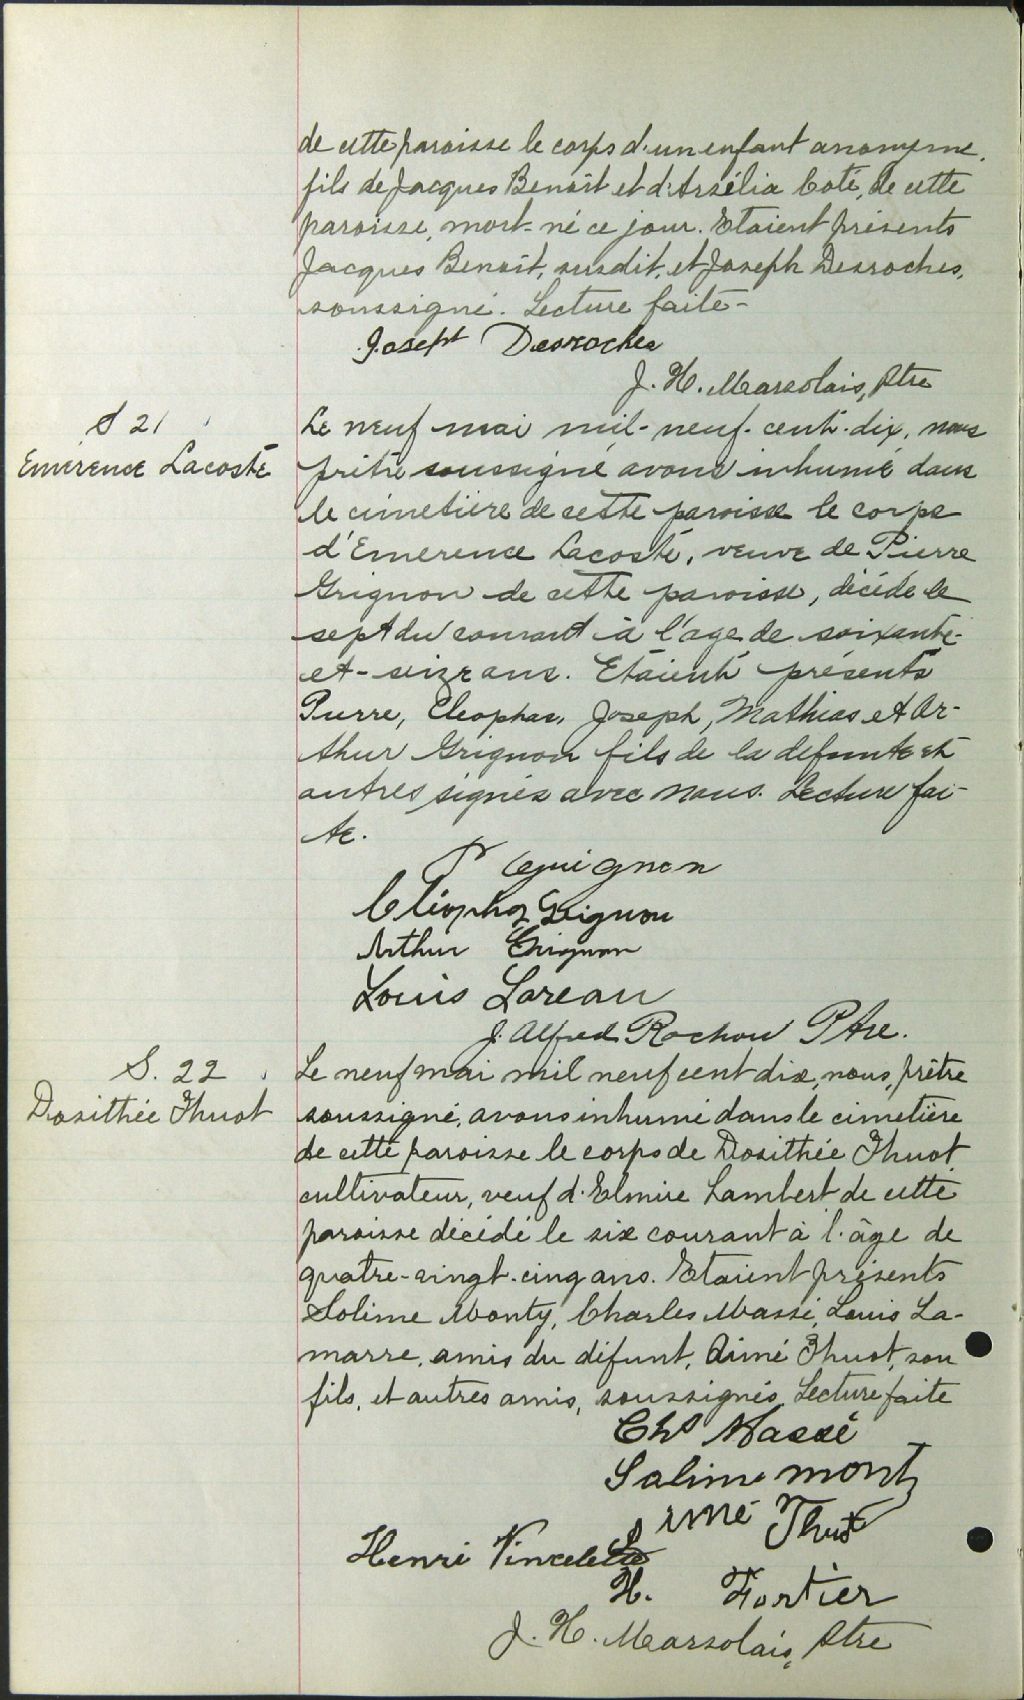 de cette paroisse le corps d'un enfant anonyme,
fils de Jacques Benoit et d'Arzélia Coté, de cette
paroisse, mort-né ce jour. Etaient présents
Jacques Benoit, susdit, et Joseph Desroches,
soussigné. Lecture faite -
Joseph Desroches
J. H. Marsolais, Ptre
S 21
Emérence Lacoste
Le neuf mai mil-neuf-cent-dix, nous
prêtre soussigné avons inhumé dans
le cimetière de cette paroisse le corps
d'Emerence Lacoste, veuve de Pierre
Grignon de cette paroisse, décédé le
sept du courant à l'age de soixante-
et-seize ans. Etaient présents
Pierre, Cleophas, Joseph, Mathias et Ar-
thur Grignon fils de la defunte et
autres signés avec nous. Lecture fai-
te.
P Grignon
Cléophas Grignon
Arthur Grignon
Louis Lareau
J. Alfred Rochon Ptre.
S. 22
Dosithée Thuot
Le neuf mai mil neuf cent dix, nous, prêtre
soussigné, avons inhumé dans le cimetière
de cette paroisse le corps de Dosithée Thuot
cultivateur, veuf d'Elmire Lambert de cette
paroisse décédé le six courant à l'âge de
quatre-vingt-cinq ans. Etaient présents
Solime Monty, Charles Massé, Louis La-
marre, amis du défunt, Aimé Thuot, son
fils, et autres amis, soussignés, Lecture faite
Chs Massé
Salime monty
Thuot
Henri Vincelette
H. Fortier
J. H. Marsolais, Ptre